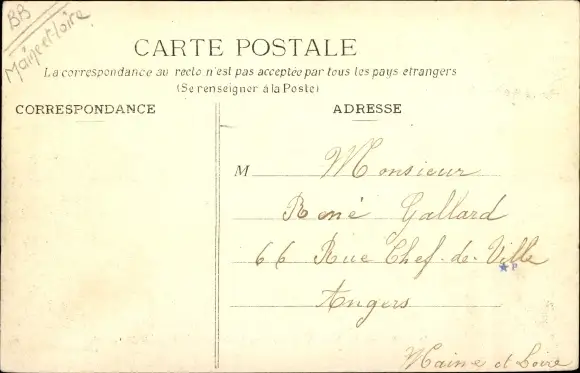 BB
Maine et Loire
CARTE POSTALE
La correspondance au recto n'est pas acceptée par tous les pays étrangers
(Se renseigner à la Poste)
CORRESPONDANCE
ADRESSE
M Monsieur
René Gallard
66 Rue Chef-de-Ville
★P
Angers
Maine et Loire